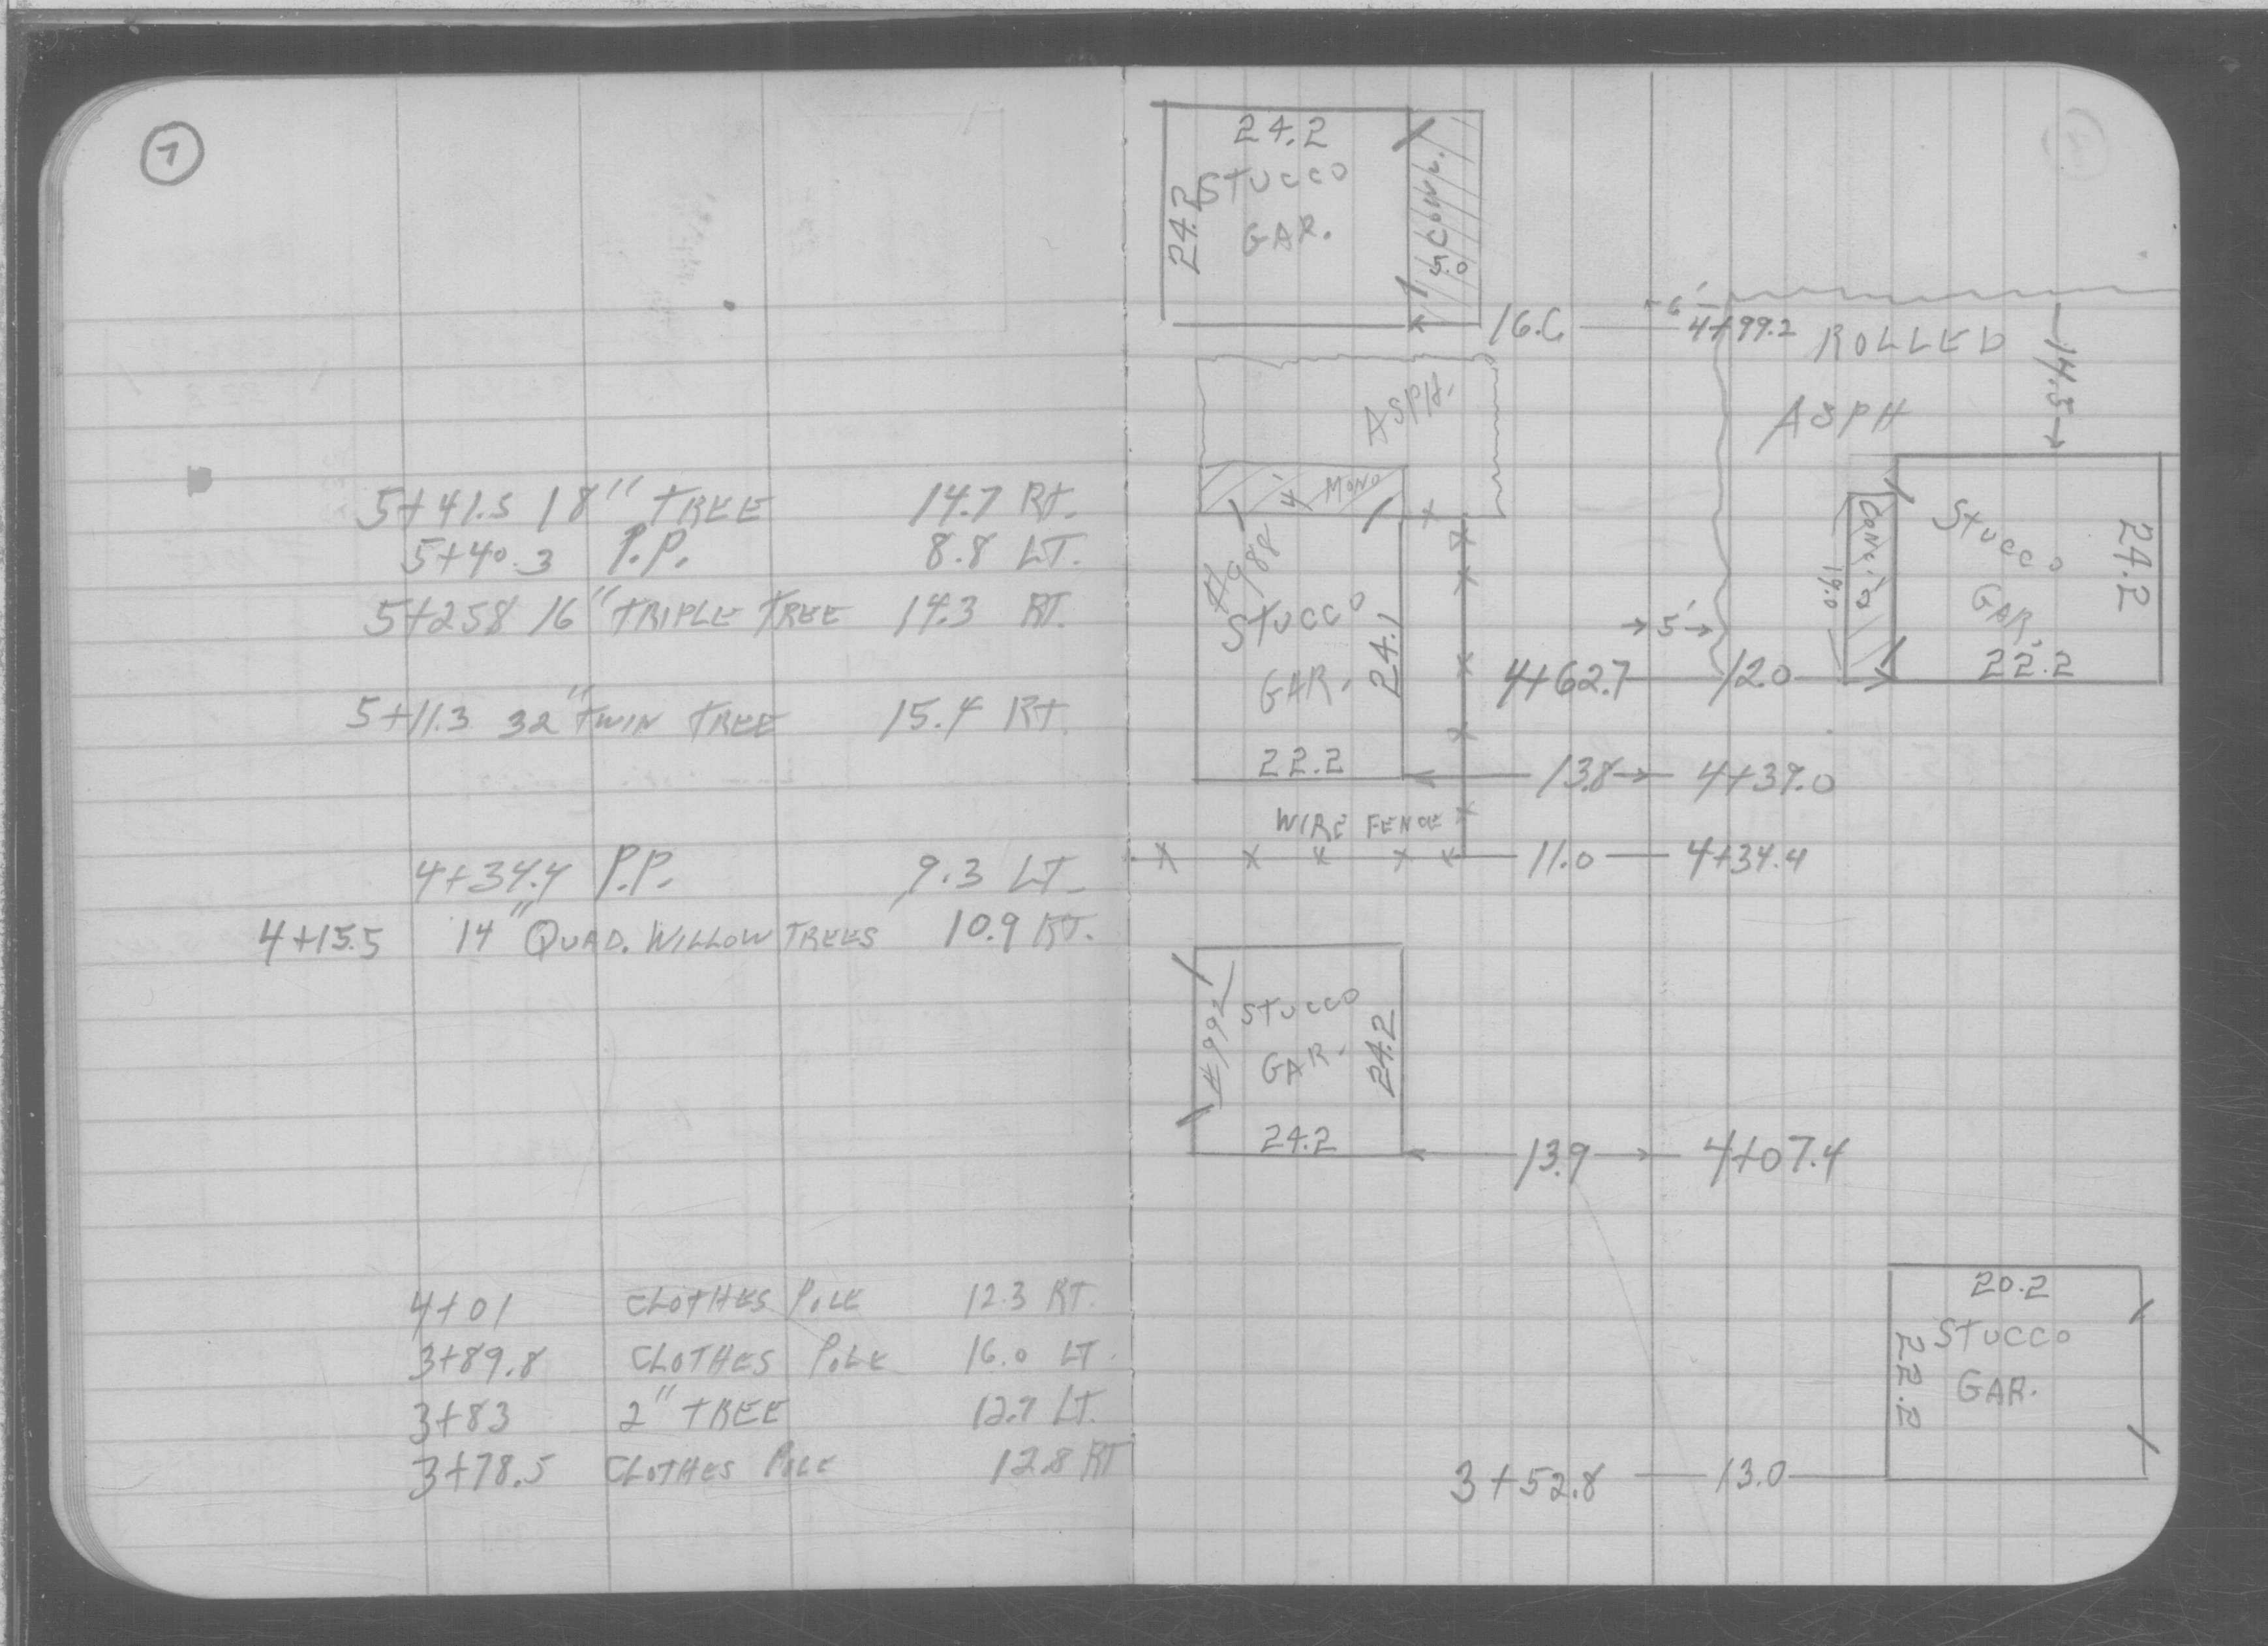 7
5+41.5 18" TREE 14.7 RT.
5+40.3 P.P. 8.8 LT.
5+258 16" TRIPLE TREE 14.3 RT.
5+11.3 32" TWIN TREE 15.4 RT.
4+34.4 P.P. 9.3 LT.
4+15.5 14" QUAD. WILLOW TREES 10.9 RT.
4+01 CLOTHES POLE 12.3 RT.
3+89.8 CLOTHES POLE 16.0 LT.
3+83 2" TREE 12.7 LT.
3+78.5 CLOTHES POLE 12.8 RT
24.2
STUCCO
GAR.
24.2
CONC.
5.0
16.6
6'
4+99.2
ROLLED
ASPH
14.5
ASPH.
4' MONO
#988
STUCCO
GAR.
24.1
22.2
CONC.
19.0
STUCCO
GAR.
24.2
22.2
5'
4+62.7 12.0
13.8 4+39.0
WIRE FENCE
11.0 4+34.4
#992
STUCCO
GAR.
24.2
24.2
13.9 4+07.4
20.2
STUCCO
GAR.
22.2
3+52.8 13.0